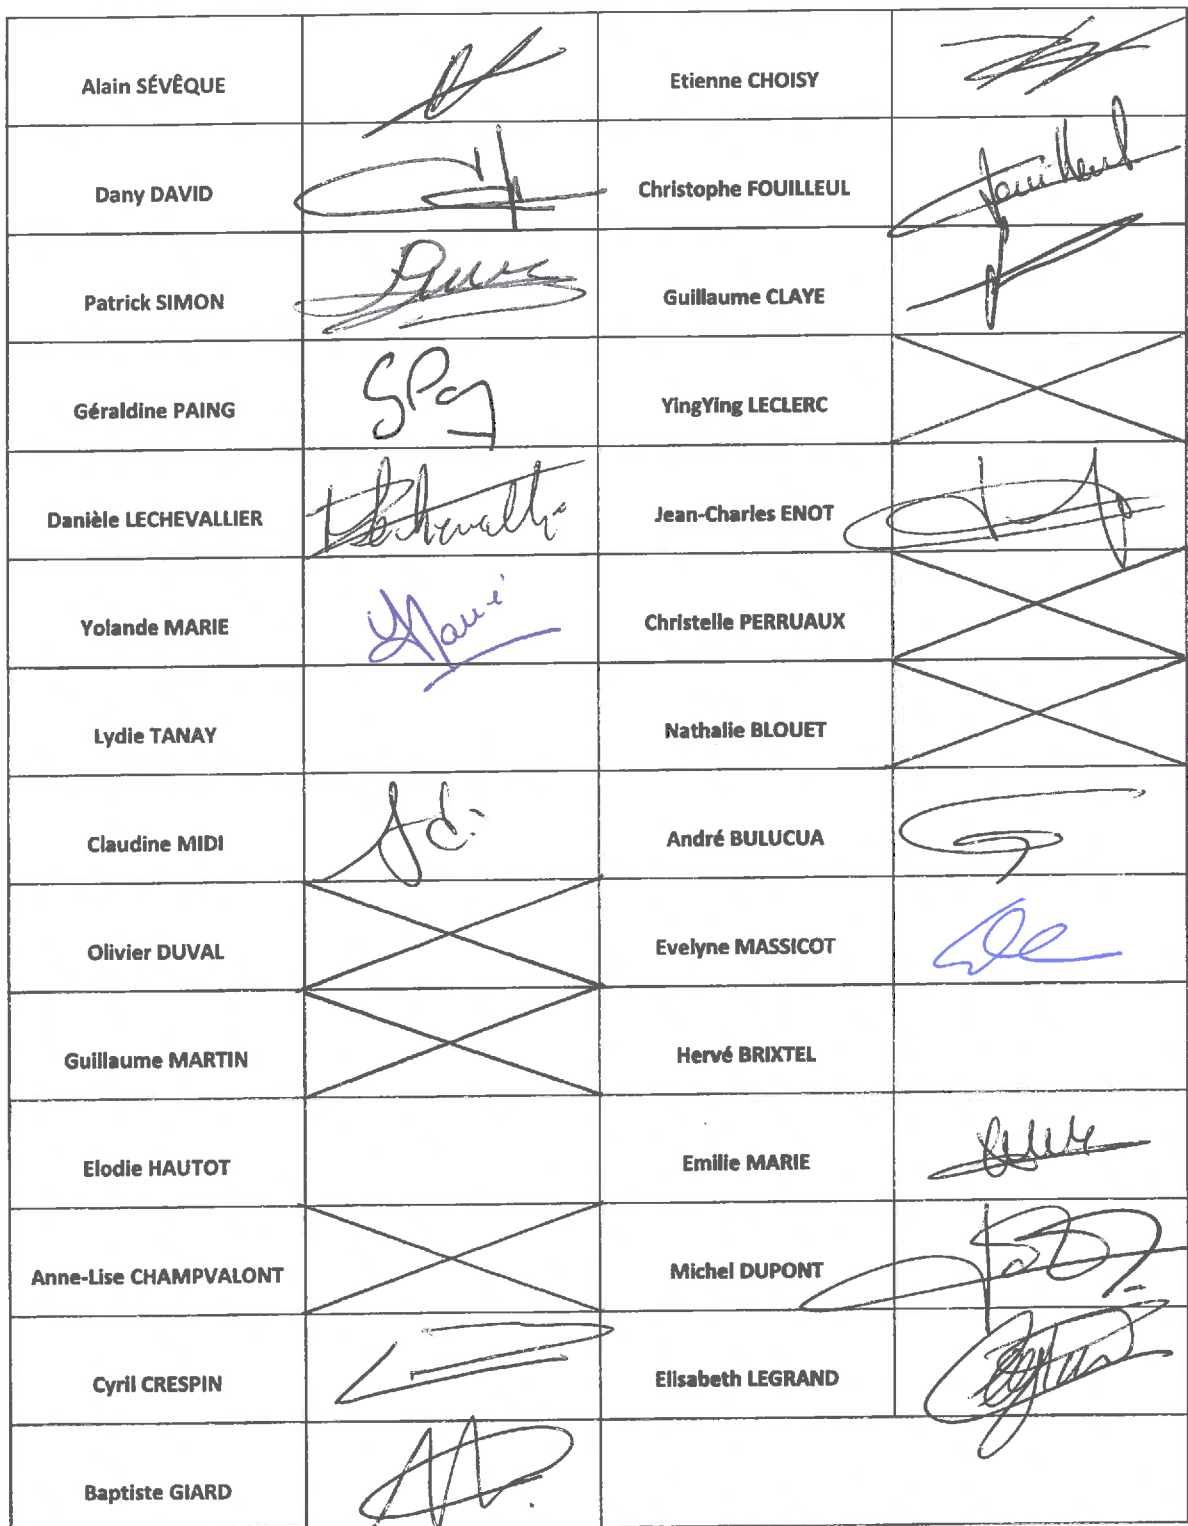 Alain SÉVÊQUE
Etienne CHOISY
Dany DAVID
Christophe FOUILLEUL
Patrick SIMON
Guillaume CLAYE
Géraldine PAING
YingYing LECLERC
Danièle LECHEVALLIER
Jean-Charles ENOT
Yolande MARIE
Christelle PERRUAUX
Lydie TANAY
Nathalie BLOUET
Claudine MIDI
André BULUCUA
Olivier DUVAL
Evelyne MASSICOT
Guillaume MARTIN
Hervé BRIXTEL
Elodie HAUTOT
Emilie MARIE
Anne-Lise CHAMPVALONT
Michel DUPONT
Cyril CRESPIN
Elisabeth LEGRAND
Baptiste GIARD